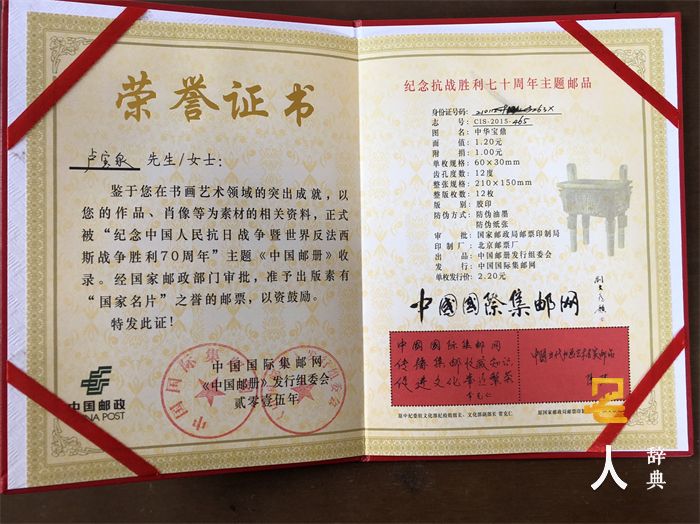 荣誉证书
卢实敏 先生/女士：
鉴于您在书画艺术领域的突出成就，以
您的作品、肖像等为素材的相关资料，正式
被“纪念中国人民抗日战争暨世界反法西
斯战争胜利70周年”主题《中国邮册》收
录。经国家邮政部门审批，准予出版素有
“国家名片”之誉的邮票，以资鼓励。
特发此证！
中国国际集邮网
《中国邮册》发行组委会
贰零壹伍年
中国邮政
CHINA POST
纪念抗战胜利七十周年主题邮品
身份证号码：
志 号：CIS-2015-465
图 名：中华宝鼎
面 值：1.20元
附 捐：1.00元
单枚规格：60×30mm
齿孔度数：12度
整张规格：210×150mm
整版枚数：12枚
版 别：胶印
防伪方式：防伪油墨
防伪纸张
审 批：国家邮政局邮票印制局
印 制 厂：北京邮票厂
出 品：中国邮册发行组委会
发 行：中国国际集邮网
单枚发行价：2.20元
中國國際集邮网
中国国际集邮网
传播集邮收藏知识
促进文化事业繁荣
人
辞典